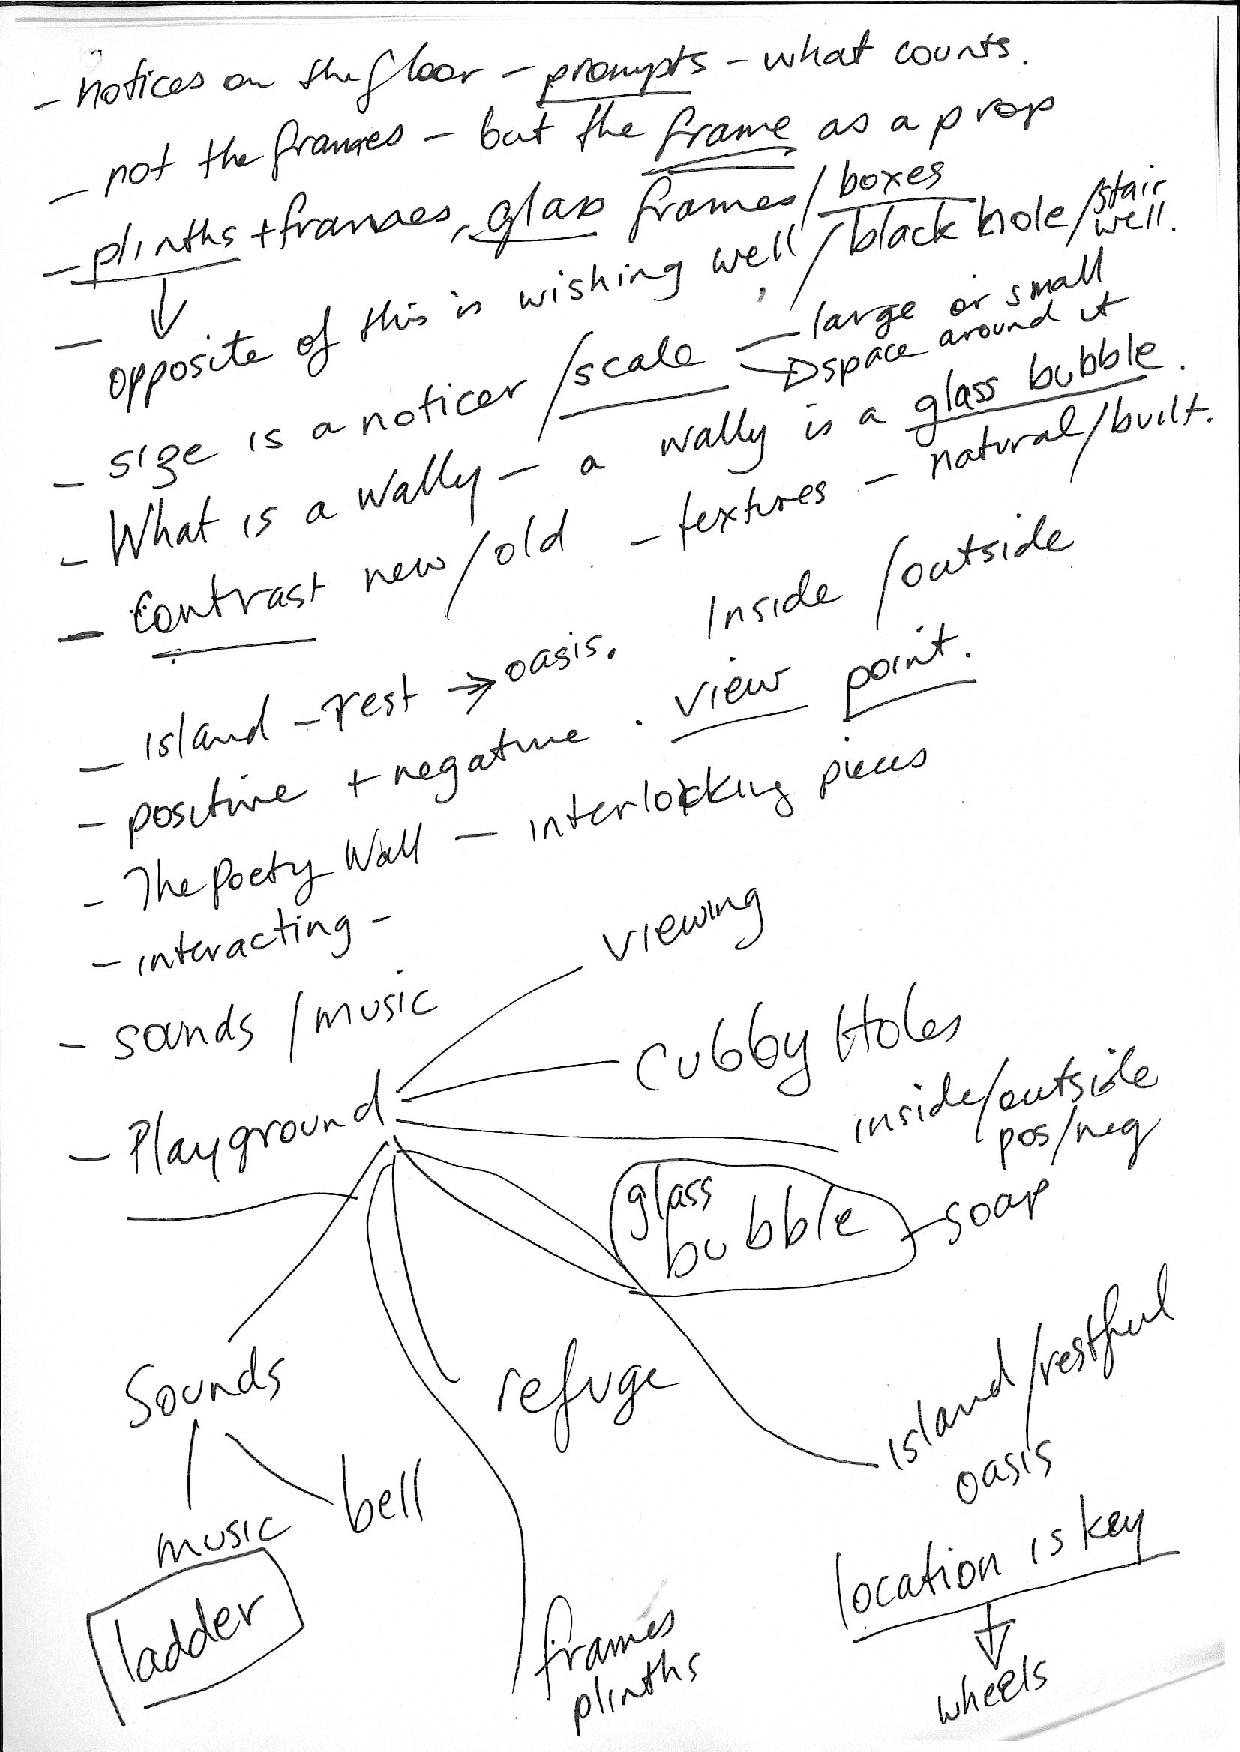 - notices on the floor - prompts - what counts.
- not the frames - but the frame as a prop
- plinths + frames, glass frames/boxes
- opposite of this is wishing well/black hole/stair well.
- size is a noticer/scale - large or small
space around it
- What is a Wally - a wally is a glass bubble.
- Contrast new/old - textures - natural/built.
- island - rest → oasis. Inside/outside
- positive + negative. view point.
- The Poety Wall - interlocking pieces
- interacting -
- sounds/music
viewing
cubby Holes
- Playground
inside/outside
pos/neg
glass
bubble - soap
Sounds
refuge
island/restful
oasis
music
bell
ladder
location is key
frames
plinths
wheels